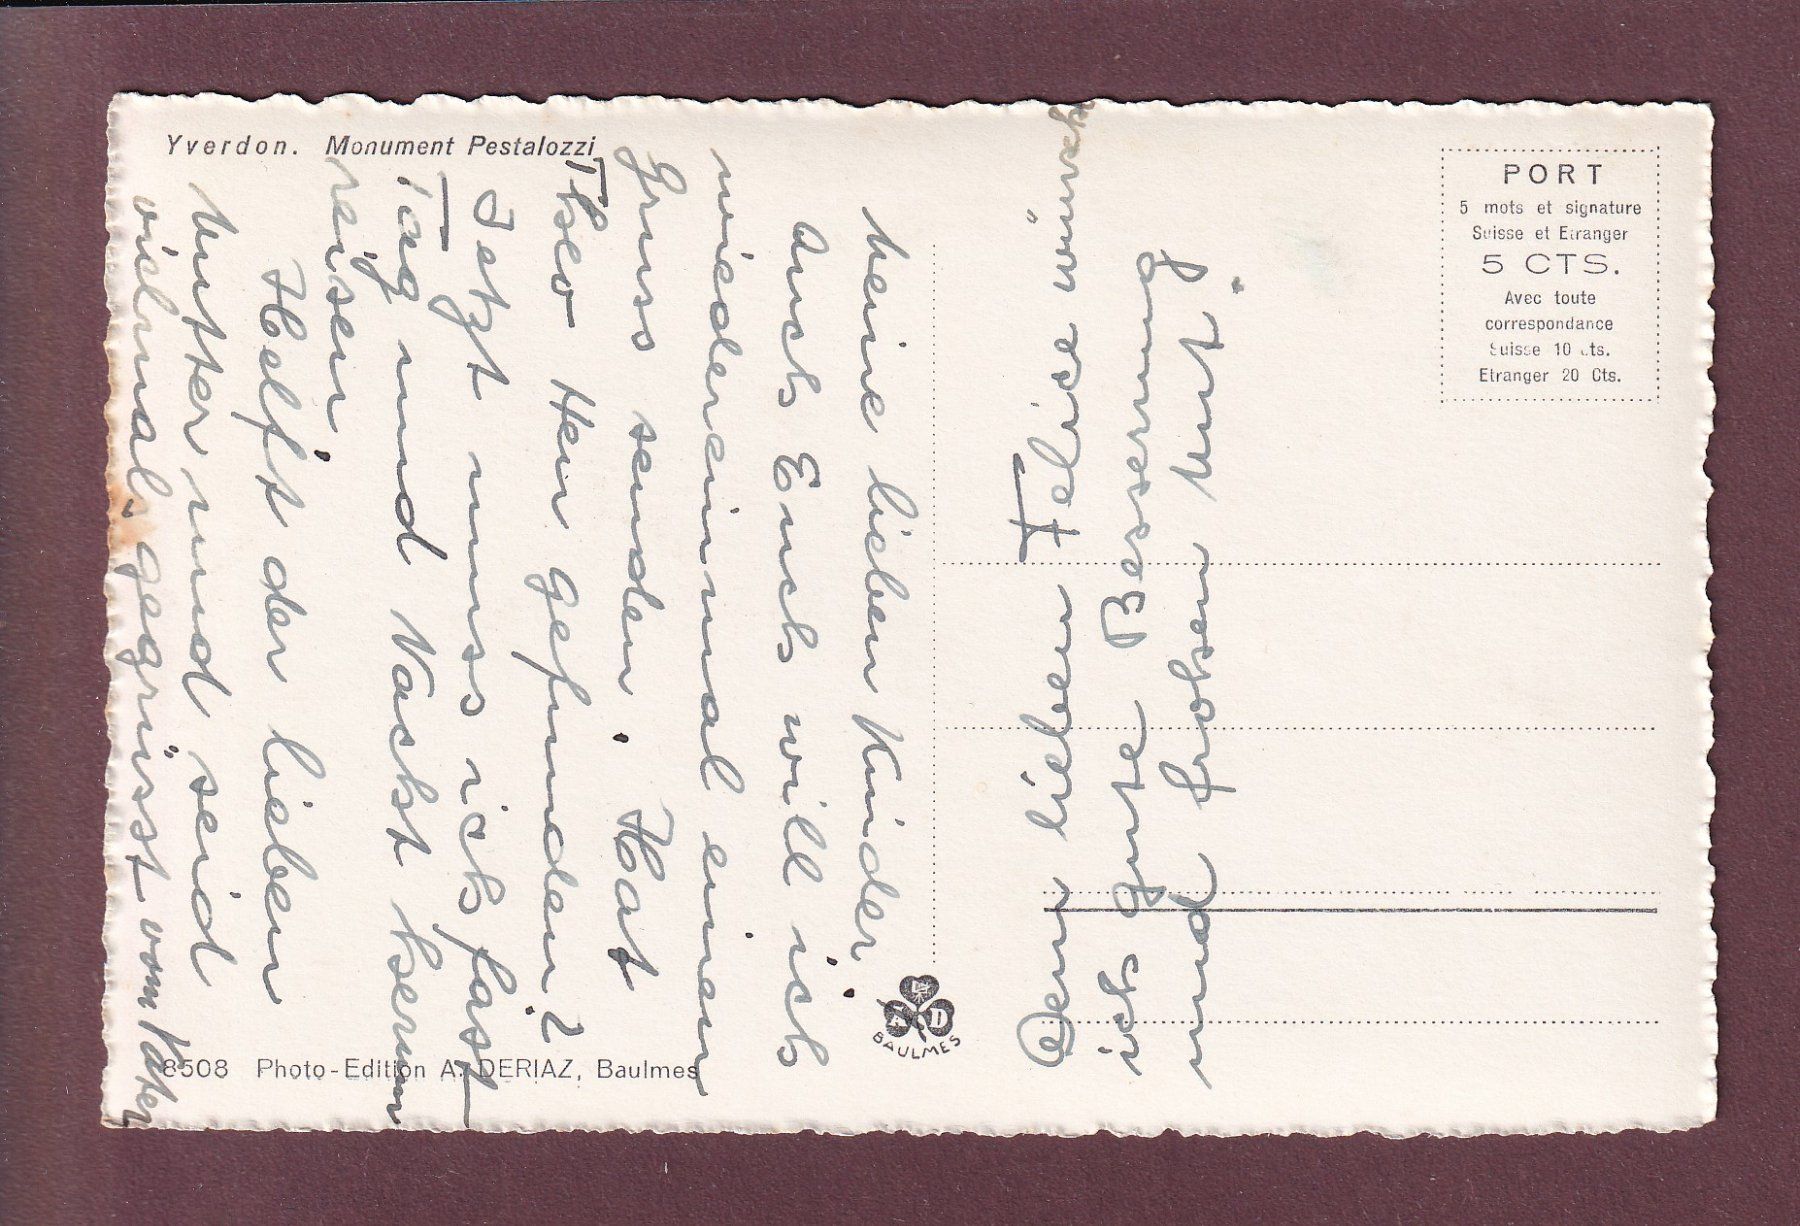 Yverdon. Monument Pestalozzi
Meine lieben Kinder
Auch Euch will ich
wiedereinmal einen
Gruss senden. Hat
Theo Heu gefunden?
Jetzt muss ich fast
Tag und Nacht herum
reisen.
Helft der lieben
Mutter und seid
vielmal gegrüsst vom Vater
8508 Photo-Edition A. DERIAZ, Baulmes
A D
BAULMES
Dem lieben Felice wünsch
ich gute Besserung
und frohen Mut.
PORT
5 mots et signature
Suisse et Etranger
5 CTS.
Avec toute
correspondance
Suisse 10 cts.
Etranger 20 Cts.